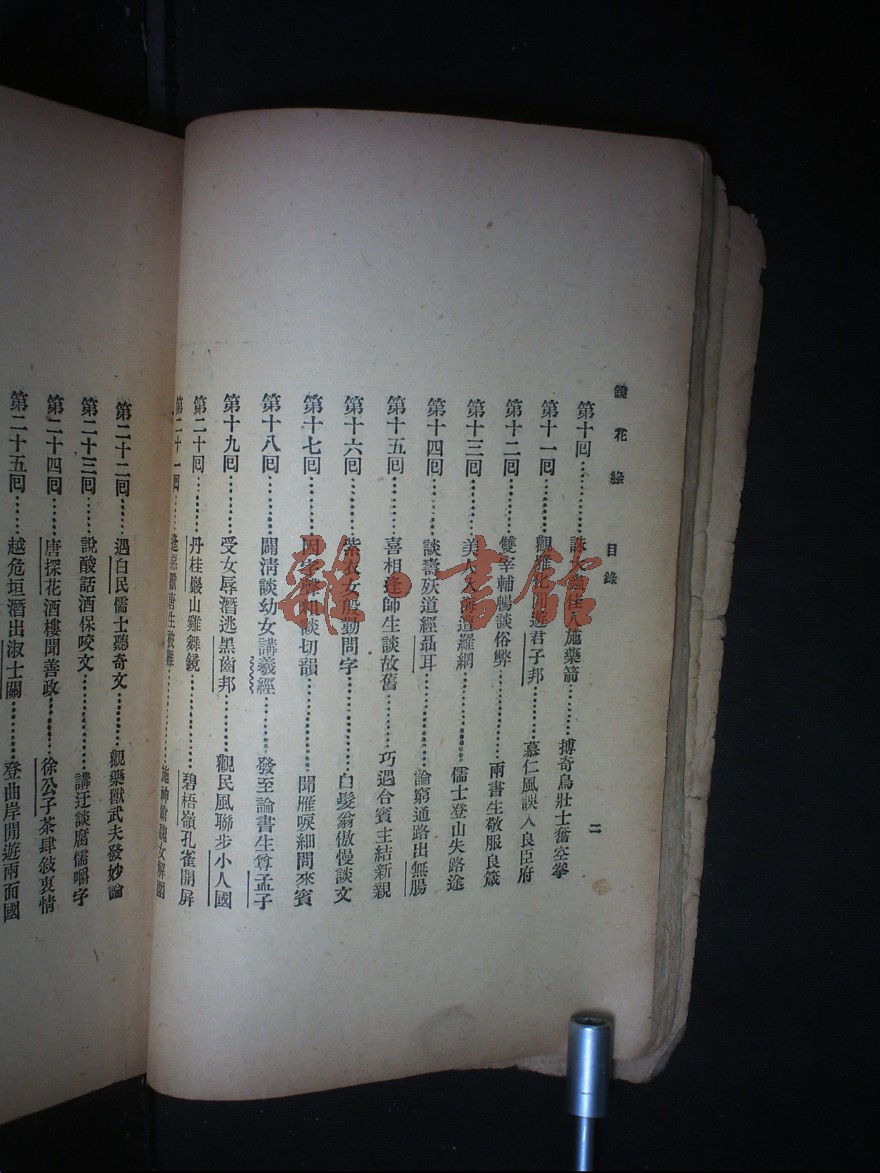 鏡花緣 目錄 二
第十回………誅大蟲佳人施藥箭………搏奇鳥壯士奮空拳
第十一回………觀雅化閒遊君子邦………慕仁風誤入良臣府
第十二回………雙宰輔暢談俗弊………兩書生敬服良箴
第十三回………美人入海遭羅網………儒士登山失路途
第十四回………談壽殀道經聶耳………論窮通路出無腸
第十五回………喜相逢師生談故舊………巧遇合賓主結新親
第十六回………紫衣女殷勤問字………白髮翁傲慢談文
第十七回………因字聲相談切韻………聞雁唳細問來賓
第十八回………闢清談幼女講羲經………發至論書生尊孟子
第十九回………受女辱潛逃黑齒邦………觀民風聯步小人國
第二十回………丹桂巖山雞舞鏡………碧梧嶺孔雀開屏
第二十一回………逢惡獸唐生被難………施神鎗魏女解圍
第二十二回………遇白民儒士聽奇文………觀藥獸武夫發妙論
第二十三回………說酸話酒保咬文………講迂談腐儒嚼字
第二十四回………唐探花酒樓聞善政………徐公子茶肆敍衷情
第二十五回………越危垣潛出淑士關………登曲岸閒遊兩面國
雜·書館